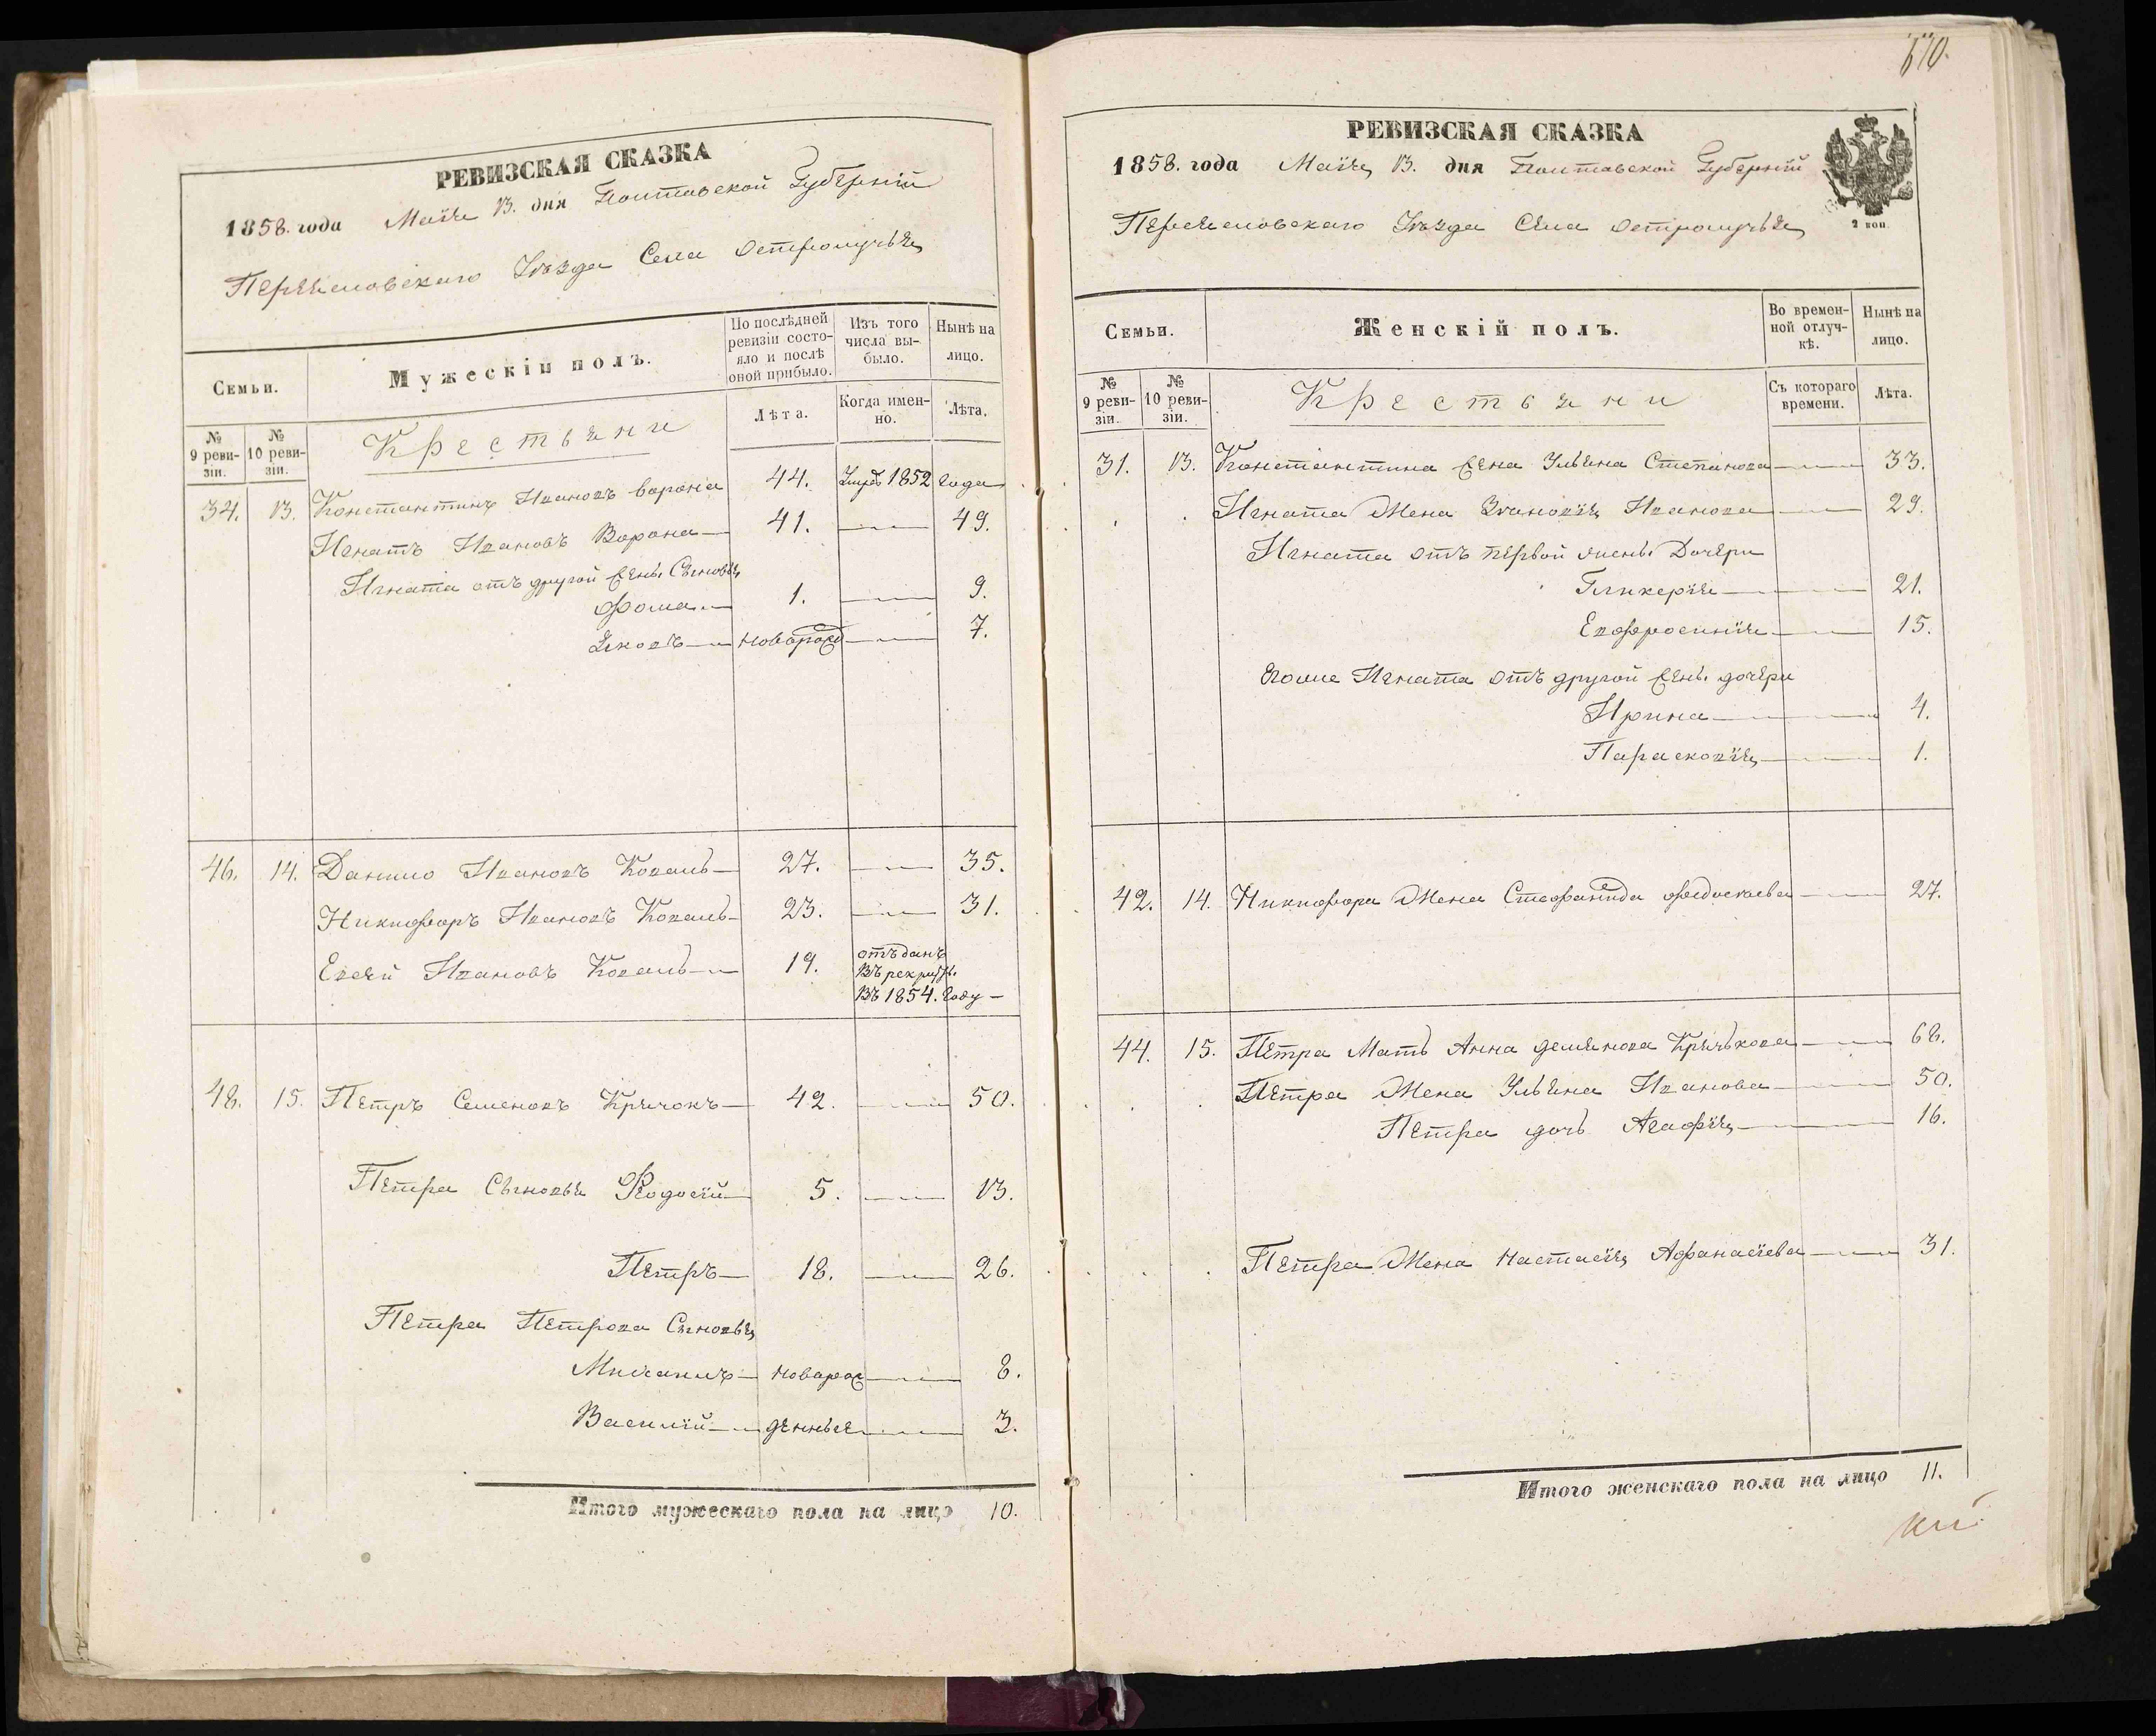 РЕВИЗСКАЯ СКАЗКА
1858. года Маія 13. дня Полтавской Губерніи
Переяславскаго Уѣзда Села Остролучья
Семьи.
Мужескій полъ.
По послѣдней ревизіи состояло и послѣ оной прибыло.
Изъ того числа выбыло.
Нынѣ на лицо.
№ 9 ревизіи.
№ 10 ревизіи.
Крестьяни
Лѣта.
Когда именно.
Лѣта.
34. 13. Константинъ Ивановъ Ворона 44. Умре 1852 Года
Игнатъ Ивановъ Ворона 41. 49.
Игната отъ другой жены Сыновья
Фома 1. 9.
Яковъ новорож 7.
46. 14. Данило Ивановъ Коваль 27. 35.
Никифоръ Ивановъ Коваль 23. 31.
Евсей Ивановъ Коваль 19. отъданъ
въ рекруты
въ 1854. Году
48. 15. Петръ Семеновъ Кричокъ 42. 50.
Петра Сыновья Феодосій 5. 13.
Петръ 18. 26.
Петра Петрова Сыновья
Михаилъ новорож 8.
Василій денные 3.
Итого мужескаго пола на лицо 10.
670.
РЕВИЗСКАЯ СКАЗКА
1858. года Маія 13. дня Полтавской Губерніи
Переяславскаго Уѣзда Села Остролучья
2 коп.
Семьи.
Женскій полъ.
Во временной отлучкѣ.
Нынѣ на лицо.
№ 9 ревизіи.
№ 10 ревизіи.
Крестьяни
Съ котораго времени.
Лѣта.
31. 13. Константина жена Ульяна Степанова 33.
Игната Жена Иванова 29.
Игната отъ первой жены Дочери
Гликерія 21.
Евфросинія 15.
Его же Игната отъ другой жены дочери
Ирина 4.
Парасковія 1.
42. 14. Никифора Жена Стефанида 27.
44. 15. Петра Мать Анна Демянова Кричкова 68.
Петра Жена Ульяна Иванова 50.
Петра дочь Агафія 16.
Петра Жена Настасія Афанасіева 31.
Итого женскаго пола на лицо 11.